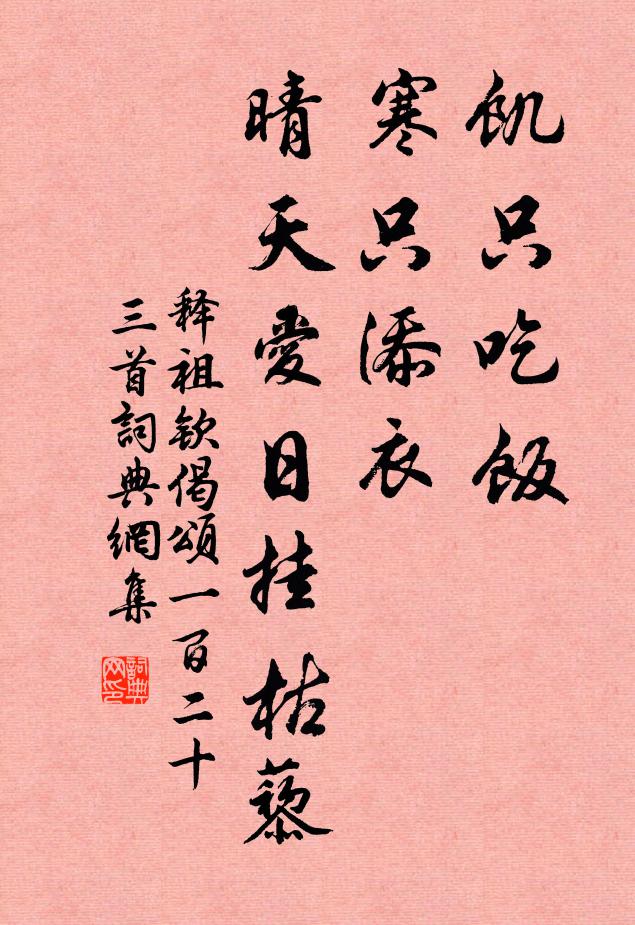 飢只吃飯
寒只添衣
晴天愛日挂枯藜
释祖钦偈頌一百二十
三首詞典網集
詞典网印